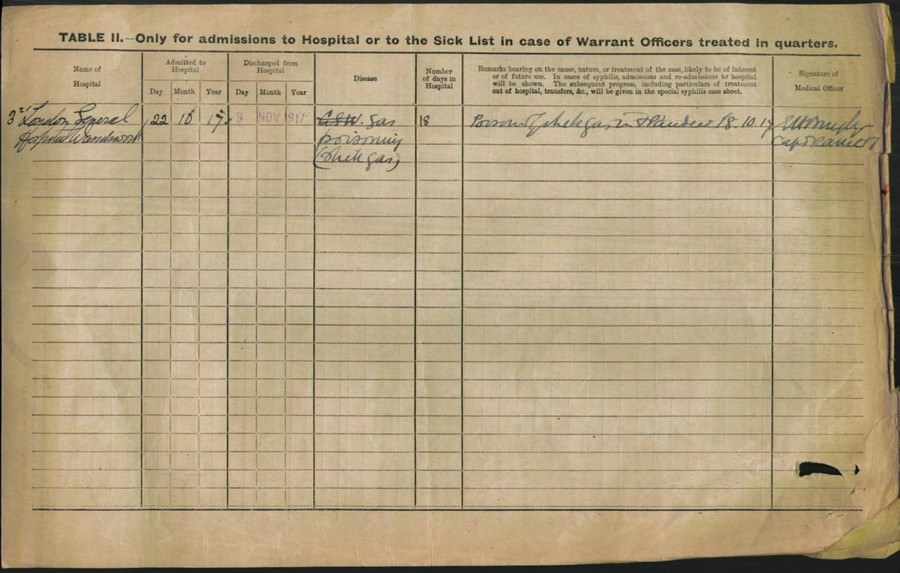 TABLE II.—Only for admissions to Hospital or to the Sick List in case of Warrant Officers treated in quarters.
Name of
Hospital
Admitted to
Hospital
Day Month Year
Discharged from
Hospital
Day Month Year
Disease
Number
of days in
Hospital
Remarks bearing on the cause, nature, or treatment of the case, likely to be of interest
or of future use. In cases of syphilis, admissions and re-admissions to hospital
will be shown. The subsequent progress, including particulars of treatment
out of hospital, transfers, &c., will be given in the special syphilis case sheet.
Signature of
Medical Officer
3rd London General
Hospital Wandsworth
22 10 17
9 NOV 1917
G.S.W. gas
poisoning
(shell gas)
18
Poisoned shell gas in Flanders 18.10.17
Capt RAMC T